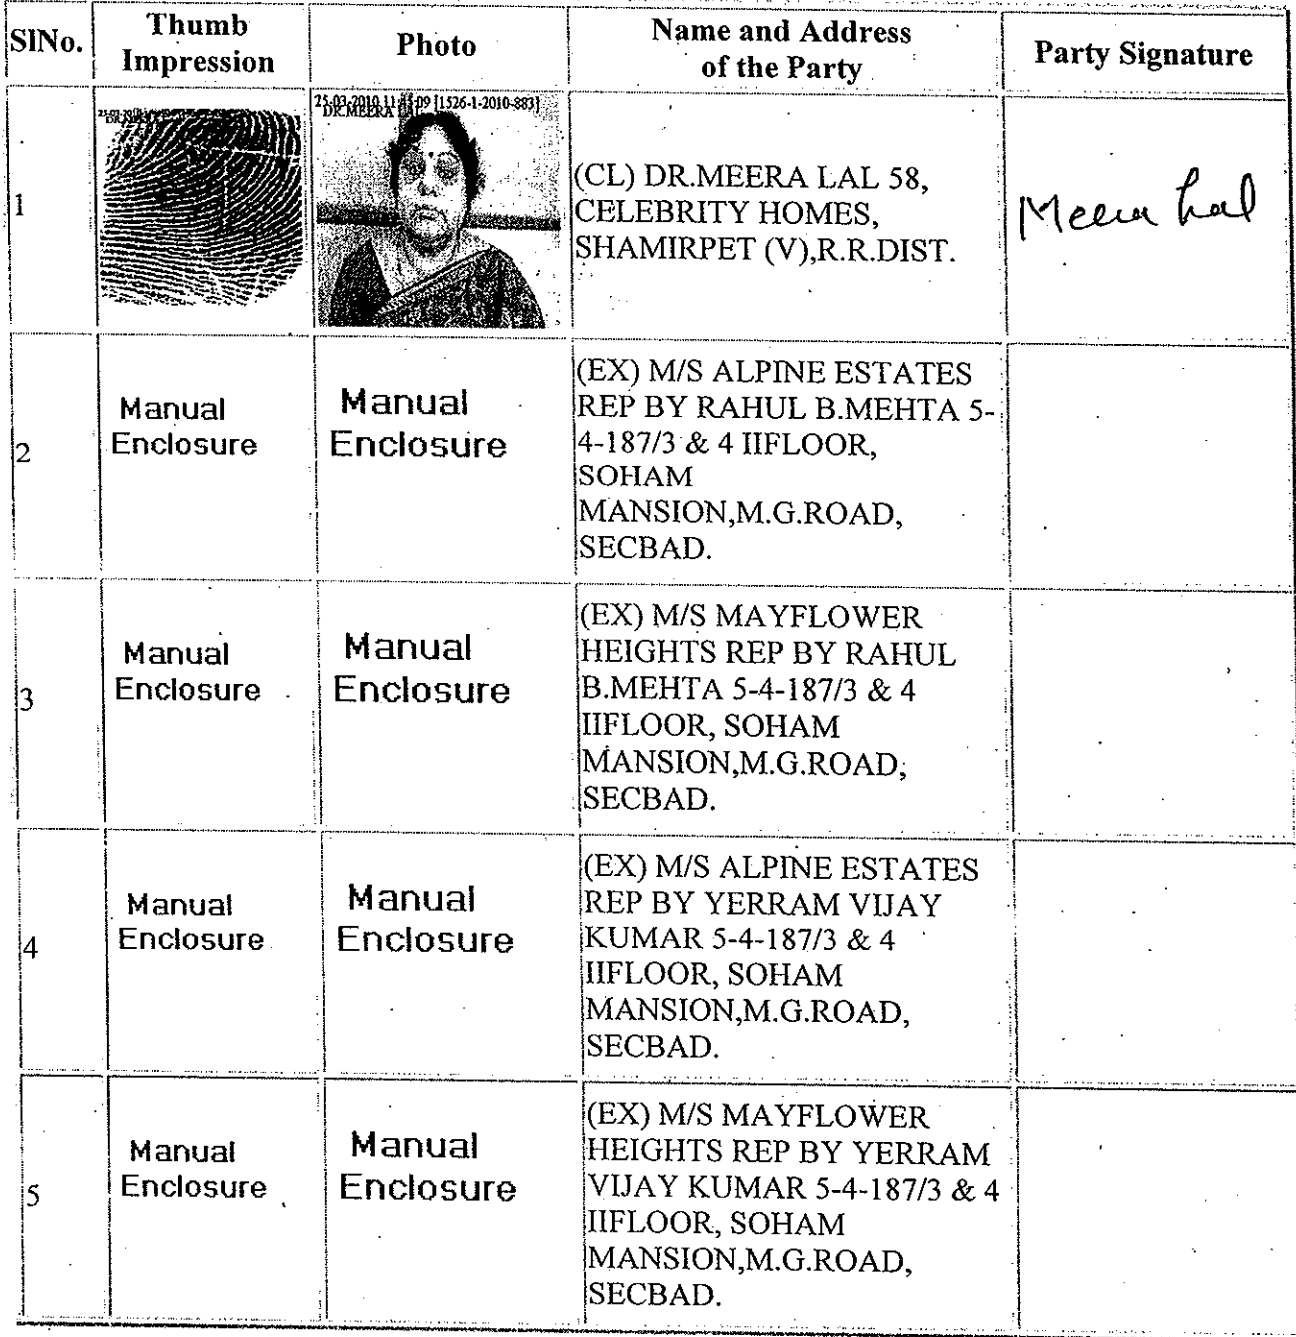 SlNo.
Thumb
Impression
Photo
Name and Address
of the Party
Party Signature
1
25-03-2010 11:45:09 [1526-1-2010-883]
DR.MEERA LAL
(CL) DR.MEERA LAL 58,
CELEBRITY HOMES,
SHAMIRPET (V),R.R.DIST.
Meera Lal
2
Manual
Enclosure
Manual
Enclosure
(EX) M/S ALPINE ESTATES
REP BY RAHUL B.MEHTA 5-
4-187/3 & 4 IIFLOOR,
SOHAM
MANSION,M.G.ROAD,
SECBAD.
3
Manual
Enclosure
Manual
Enclosure
(EX) M/S MAYFLOWER
HEIGHTS REP BY RAHUL
B.MEHTA 5-4-187/3 & 4
IIFLOOR, SOHAM
MANSION,M.G.ROAD,
SECBAD.
4
Manual
Enclosure
Manual
Enclosure
(EX) M/S ALPINE ESTATES
REP BY YERRAM VIJAY
KUMAR 5-4-187/3 & 4
IIFLOOR, SOHAM
MANSION,M.G.ROAD,
SECBAD.
5
Manual
Enclosure
Manual
Enclosure
(EX) M/S MAYFLOWER
HEIGHTS REP BY YERRAM
VIJAY KUMAR 5-4-187/3 & 4
IIFLOOR, SOHAM
MANSION,M.G.ROAD,
SECBAD.